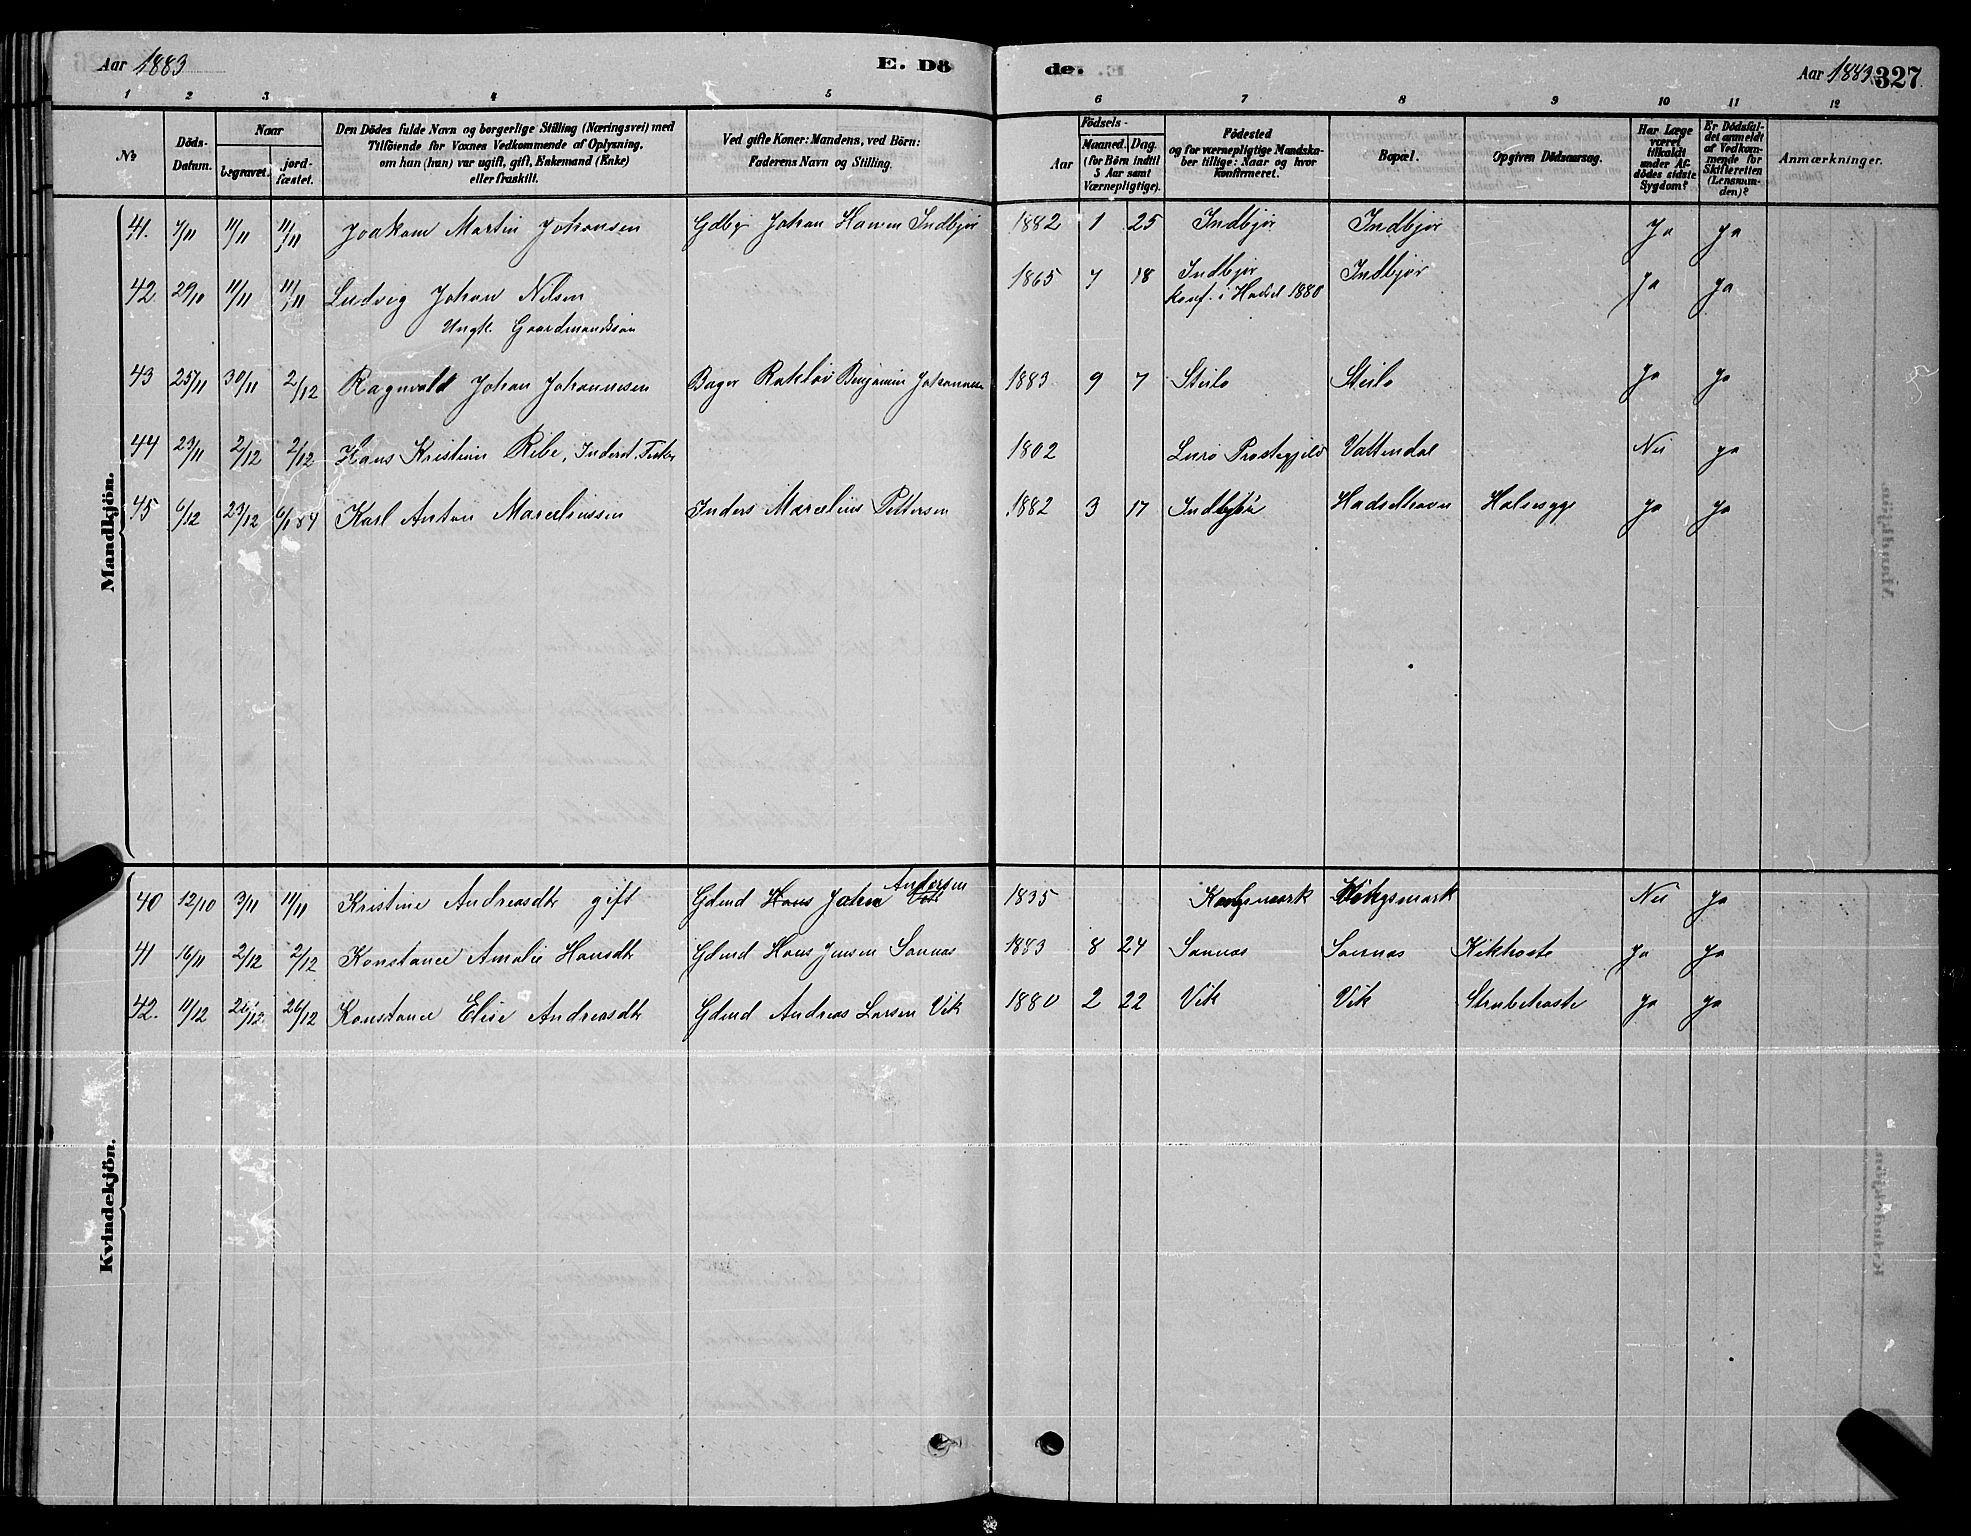 Aar 1883 E. Dö de. Aar 1883 327
1 2 3 4 5 6 7 8 9 10 11 12
No. Döds-Datum. Naar begravet. jordfæstet. Den Dödes fulde Navn og borgerlige Stilling (Næringsvei) med Tilföiende for Voxnes Vedkommende af Oplysning, om hun (han) var ugift, gift, Enkemand (Enke) eller fraskilt. Ved gifte Koner: Mandens, ved Börn: Faderens Navn og Stilling. Födsels- Aar Maaned. Dag. (for Börn indtil 5 Aar samt Værnepligtige). Födested og for værnepligtige Mandskaber tillige: Naar og hvor konfirmeret. Bopæl. Opgiven Dödsaarsag. Har Læge været tilkaldt under Afdödes sidste Sygdom? Er Dödsfaldet anmeldt af Vedkommende for Skifteretten (Lensmanden)? Anmærkninger.
Mandkjön.
41. 7/11 11/11 11/11 Joakam Martin Johansen Gdbr Johan Hansen Indbjør 1882 1 25 Indbjør Indbjør Ja ja
42 29/10 11/11 11/11 Ludvig Johan Nilsen 1865 7 18 Indbjør Indbjør ja ja
Ungk. Gaardmandssøn Konf. i Hadsel 1880
43 25/11 30/11 2/12 Ragnvald Johan Johannesen Bager Benjamin Johannesen 1883 9 7 Steilo Steilo ja ja
44 23/11 2/12 2/12 Hans Kristian Ribe, Inderst. 1802 Lurø Prestegjeld Vattendal Nei ja
45 6/12 23/12 6/1 84 Karl Anton Marceliussen Inders Marcelius Pettersen 1882 3 17 Indbjør Hadselhavn Halsesyge ja ja
Kvindekjön.
40 12/10 3/11 11/11 Kristine Andreasdtr gift Gdmd Hans Johan Vik Andersen 1835 Kongsmark Kongsmark Nei ja
41 16/11 2/12 2/12 Konstance Amalie Hansdtr Gdmd Hans Jensen Sannas 1883 8 24 Sannas Sannas Kikhoste ja ja
42. 11/12 26/12 26/12 Konstance Elise Andreasdtr Gdmd Andreas Larsen Vik 1880 2 22 Vik Vik Strubehoste ja ja